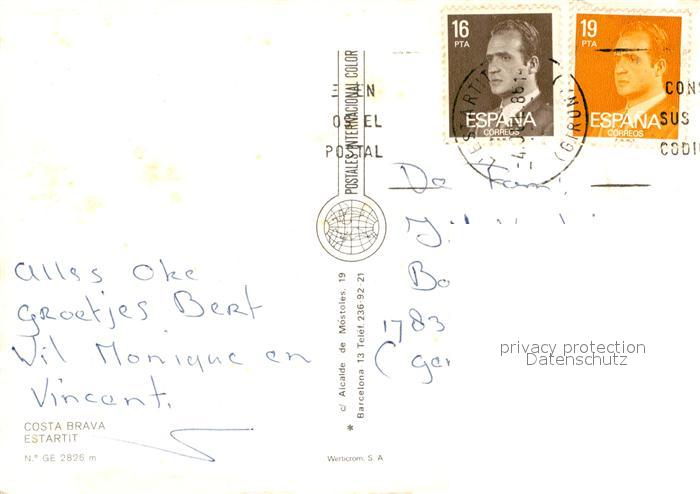 16 PTA
ESPAÑA
CORREOS
19 PTA
ESPAÑA
CORREOS
ESTARTIT
(GIRONA)
EL
POSTAL
SUS
POSTALES INTERNACIONAL COLOR
De Fam.
Bo
1783
privacy protection
Datenschutz
Alles Oke
Groetjes Bert
Wil Monique en
Vincent.
COSTA BRAVA
ESTARTIT
N.º GE 2826 m
c/ Alcalde de Móstoles, 19
* Barcelona 13 Teléf. 236-92-21
Werticrom. S. A